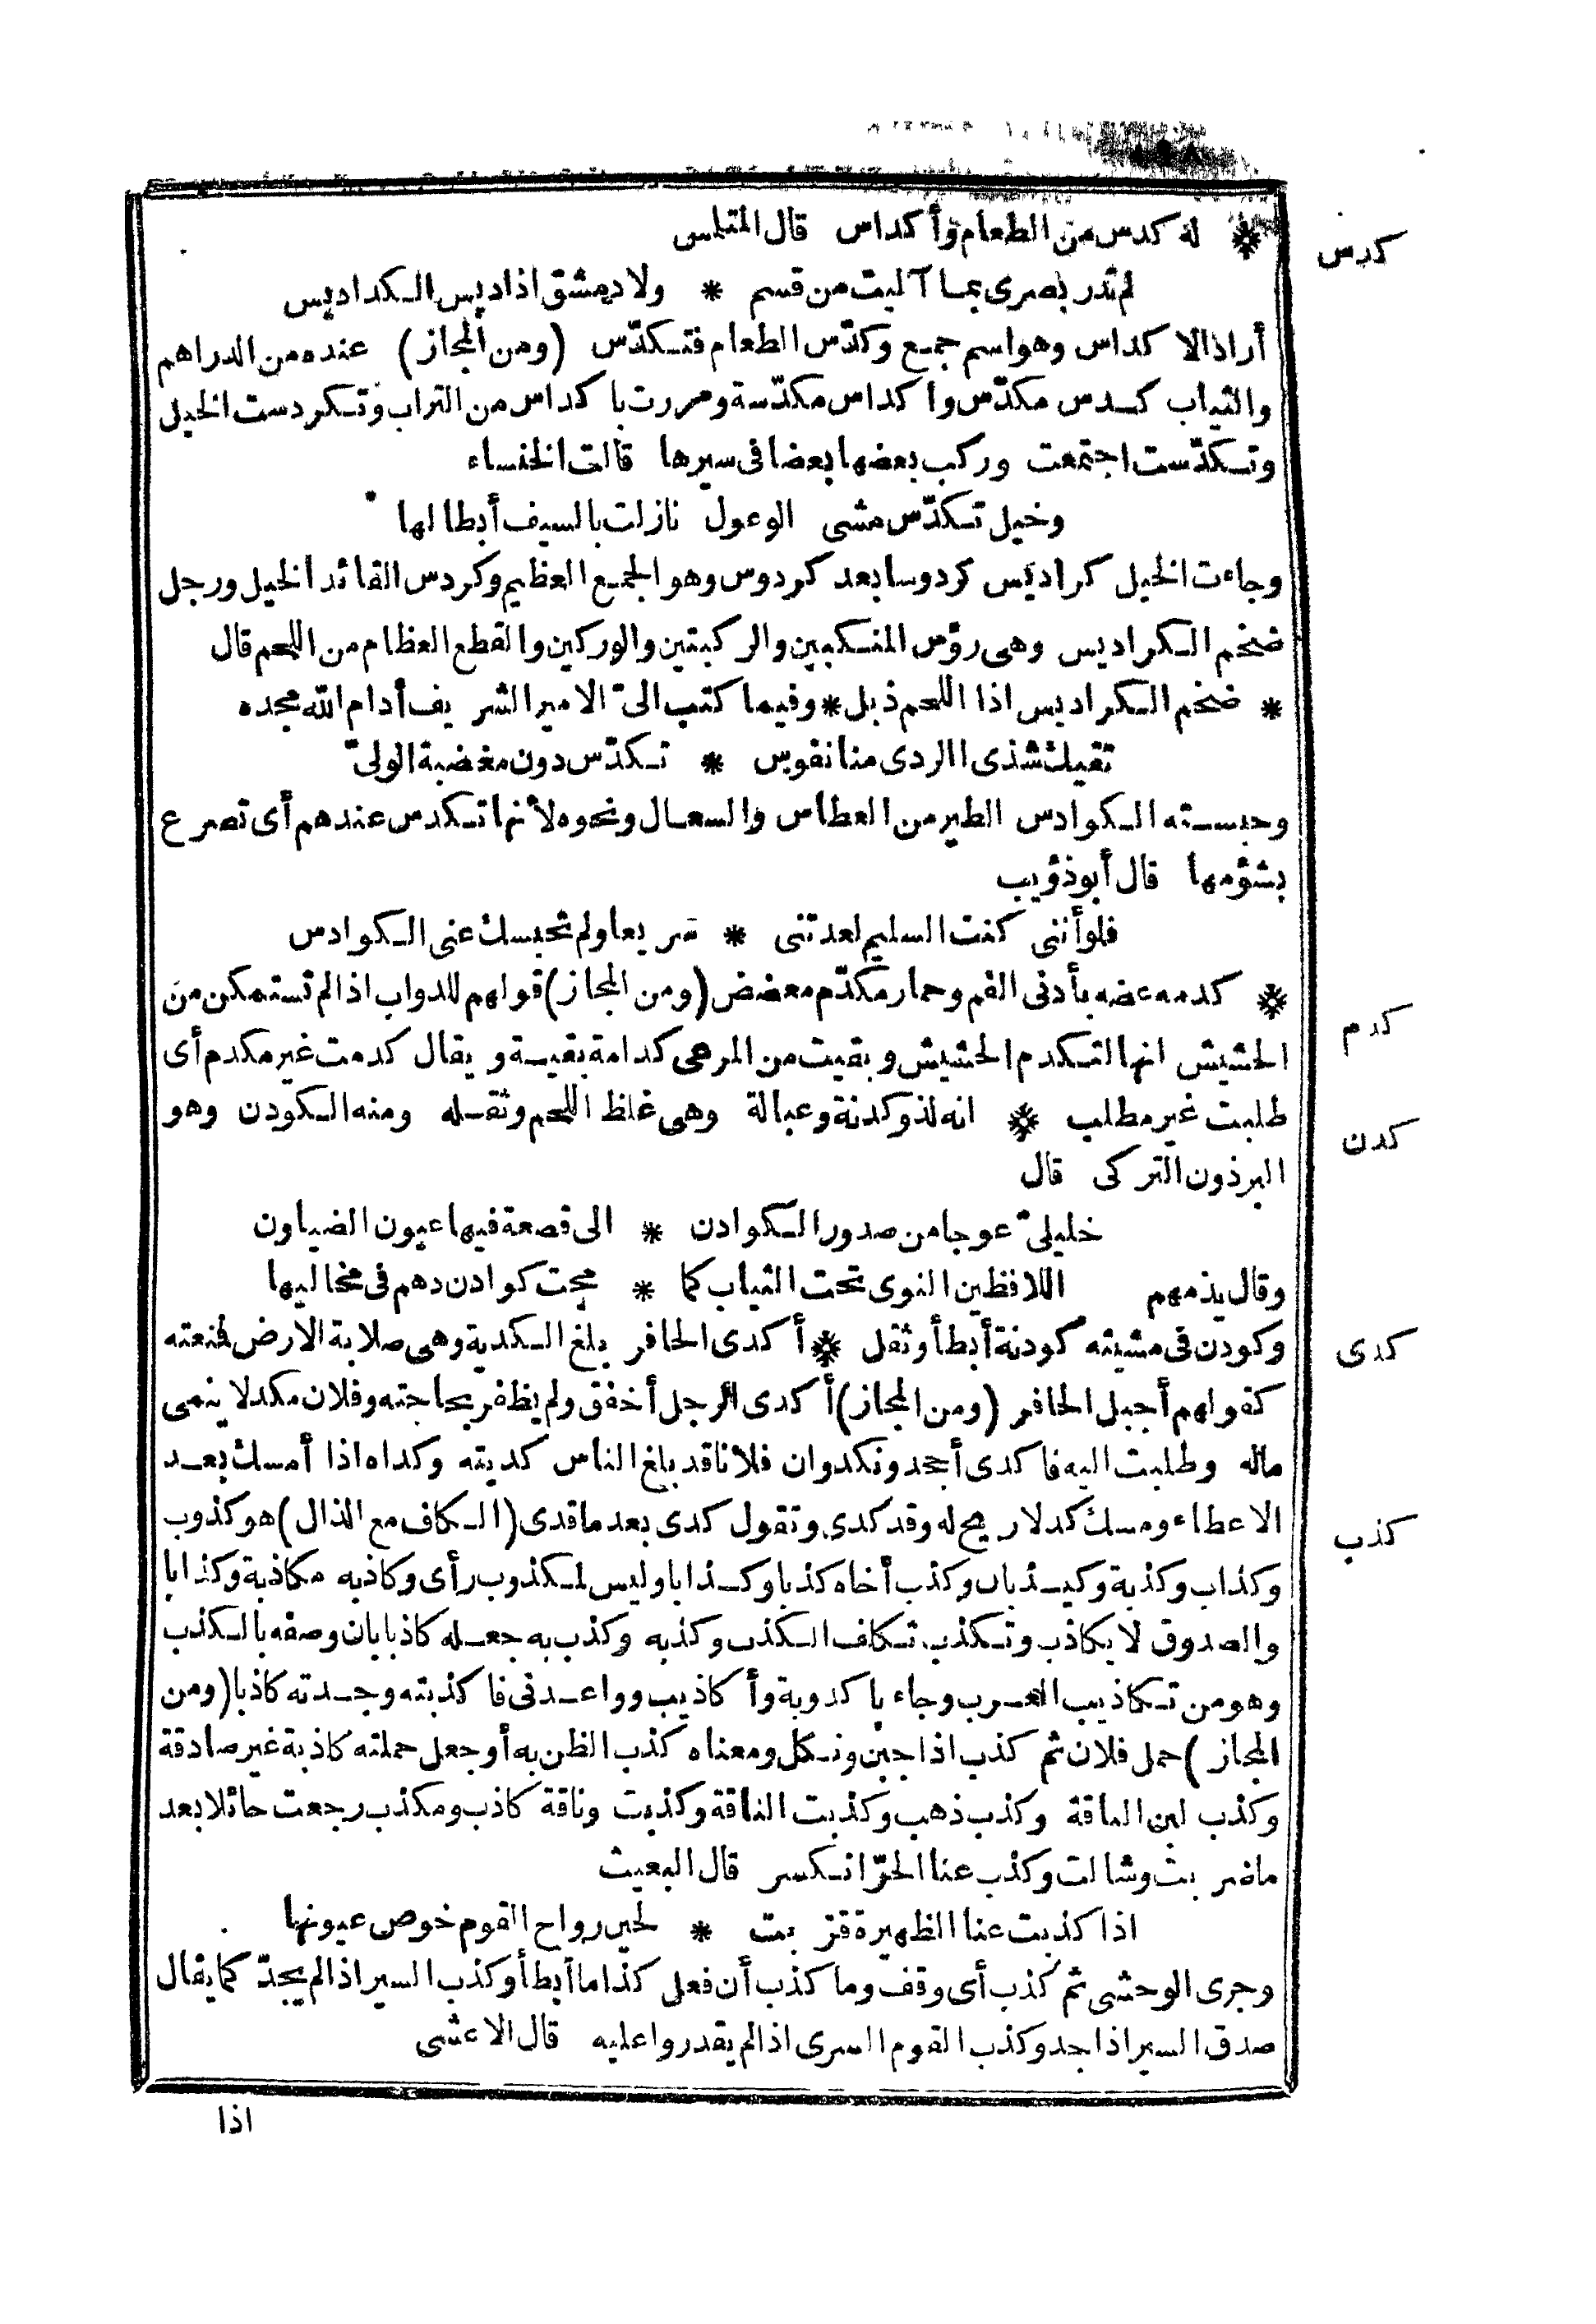 * له كدس من الطعام وأكداس قال المتلمس
كدس
لم تدر بصرى بما آليت من قسم * ولا دمشق اذا ديس الكداديس
أراد الاكداس وهو اسم جمع وكدّس الطعام فتكدّس (ومن المجاز) عنده من الدراهم
والثياب كدس مكدّس وأكداس مكدّسة ومررت باكداس من التراب وتكردست الخيل
وتكدّست اجتمعت وركب بعضها بعضا فى سيرها قالت الخنساء
وخيل تكدّس مشى الوعول نازلت بالسيف أبطالها
وجاءت الخيل كراديس كردوسا بعد كردوس وهو الجمع العظيم وكردس القائد الخيل ورجل
ضخم الكراديس وهى رؤس المنكبين والركبتين والوركين والقطع العظام من اللحم قال
* ضخم الكراديس اذا اللحم ذبل * وفيما كتب الىّ الامير الشريف أدام الله مجده
تقيك شذى الردى منا نفوس * تكدّس دون مغضبة الولىّ
وحبسته الكوادس الطير من العطاس والسعال ونحوه لأنها تكدس عندهم أى تصرع
بشؤمها قال أبو ذؤيب
فلو أننى كنت السليم لعدتنى * سريعا ولم تحبسك عنى الكوادس
* كدمه عضه بأدنى الفم وحمار مكدّم معضض (ومن المجاز) قولهم للدواب اذا لم تستمكن من
كدم
الحشيش انها لتكدم الحشيش وبقيت من المرعى كدامة بقيسة ويقال كدمت غير مكدم أى
طلبت غير مطلب * انه لذو كدنة وعبالة وهى غلظ اللحم وثقله ومنه الكودن وهو
كدن
البرذون التركى قال
خليلىّ عوجا من صدور الكوادن * الى قصعة فيها عيون الضياون
وقال يذمهم اللافظين النوى تحت الثياب كما * مجت كوادن دهم فى مخاليها
وكودن فى مشيته كودنة أبطأ وثقل * أكدى الحافر بلغ الكدية وهى صلابة الارض فمنعته
كدى
كقولهم أجبل الحافر (ومن المجاز) أكدى الرجل أخفق ولم يظفر بحاجته وفلان مكد لا ينمى
ماله وطلبت اليه فاكدى أجحد ونكد وان فلانا قد بلغ الناس كديته وكداه اذا أمسك بعد
الاعطاء ومسك كد لا ريح له وقد كدى وتقول كدى بعد ما قدى (الكاف مع الذال) هو كذوب
كذب
وكذاب وكذبة وكيذبان وكذب أخاه كذبا وكذابا وليس لمكذوب رأى وكاذبه مكاذبة وكذابا
والصدوق لا يكاذب وتكذب تكلف الكذب وكذبه وكذب به جعله كاذبا بان وصفه بالكذب
وهو من تكاذيب العرب وجاء باكذوبة وأكاذيب وواعدنى فاكذبته وجدته كاذبا (ومن
المجاز) حمل فلان ثم كذب اذا جبن ونكل ومعناه كذب الظن به أو جعل حملته كاذبة غير صادقة
وكذب لبن الناقة وكذب ذهب وكذبت الناقة وكذبت وناقة كاذب ومكذب رجعت حائلا بعد
ما ضربت وشالت وكذب عنا الحرّ انكسر قال البعيث
اذا كذبت عنا الظهيرة قربت * لحين رواح القوم خوص عيونها
وجرى الوحشى ثم كذب أى وقف وما كذب أن فعل كذا ما أبطأ وكذب السير اذا لم يجدّ كما يقال
صدق السير اذا جد وكذب القوم السرى اذا لم يقدروا عليه قال الاعشى
اذا